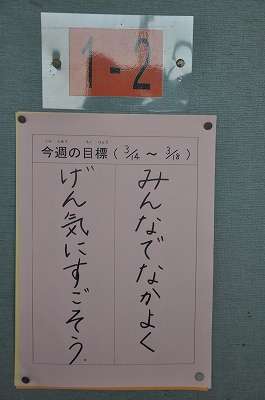 1-2
今週の目標(3/14 ~ 3/18)
みんなでなかよく
げん気にすごそう。